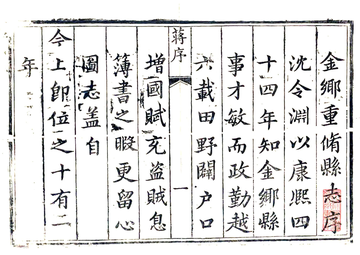 金鄉重脩縣志序
沈令淵以康熙四
十四年知金鄉縣
事才敏而政勤越
六載田野闢户口
蔣序
一
增國賦充盗賊息
簿書之暇更留心
圖志盖自
今上卽位之十有二
年